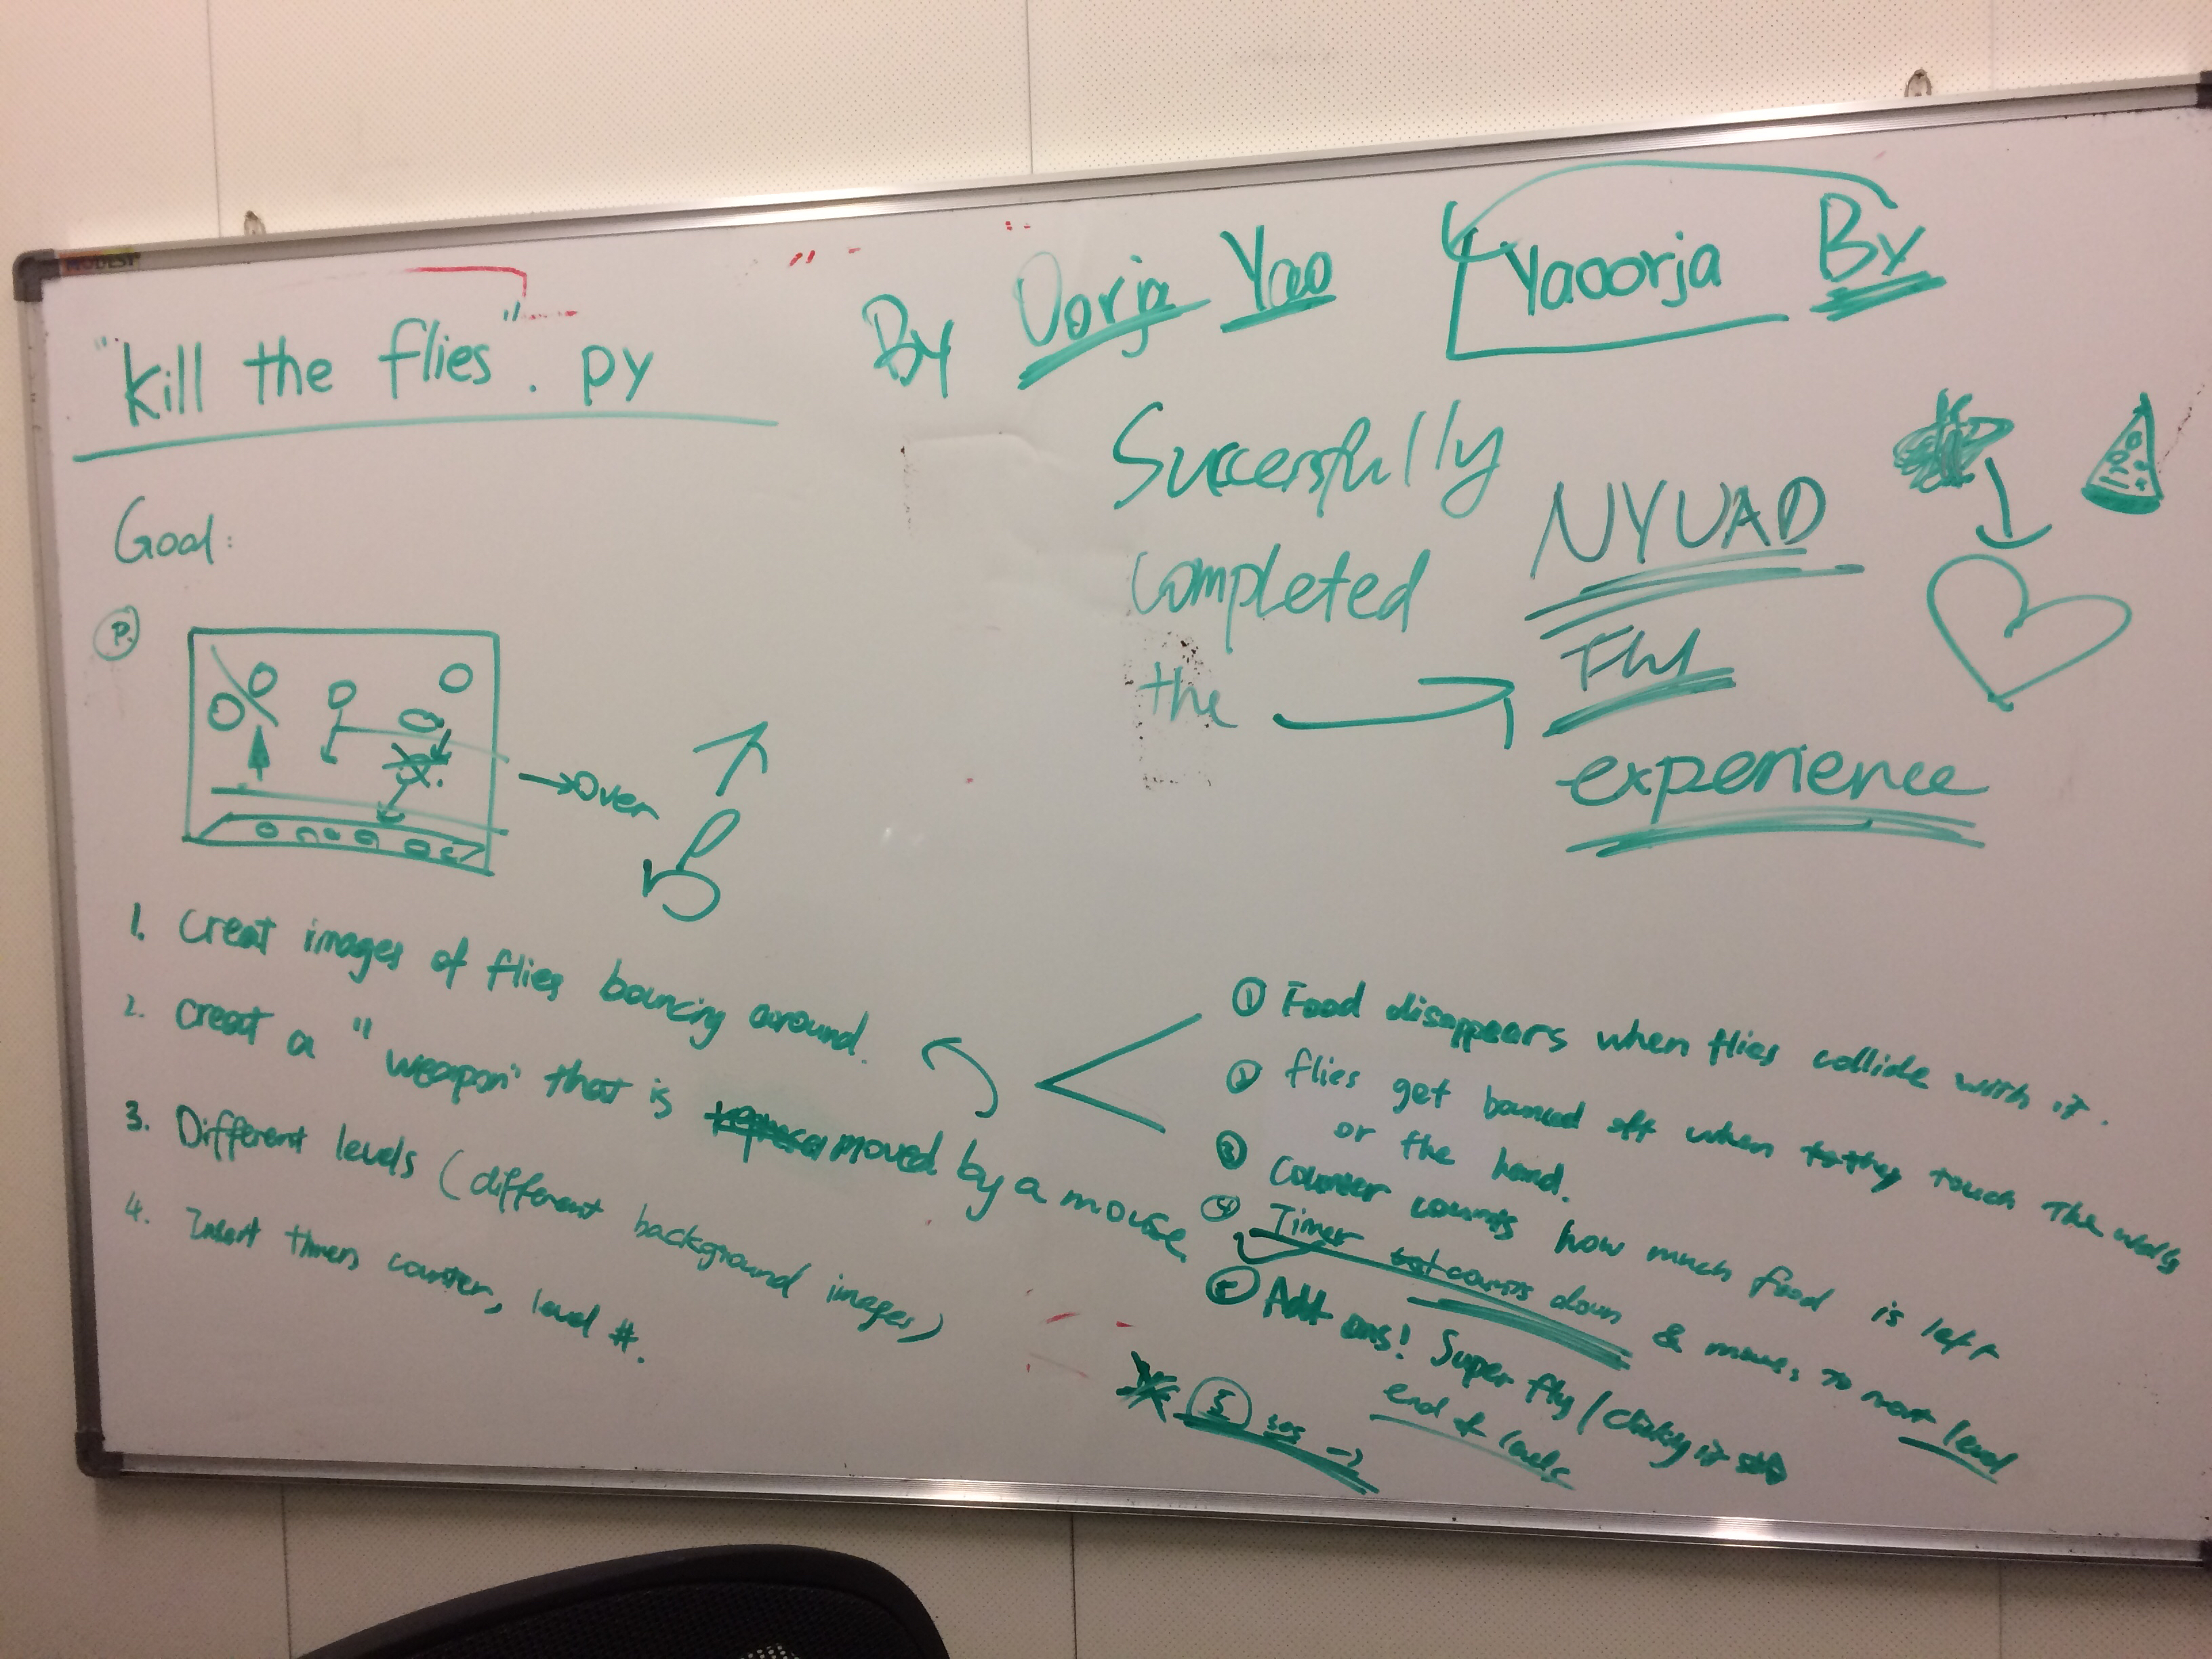 MODEST
"Kill the flies". py
By Oorja Yao
Yaoorja By
Successfully
completed
the
NYUAD
Fly
experience
Goal:
P.
Over
1. Creat images of flies bouncing around.
2. creat a "weapon" that is moved by a mouse
3. Different levels (different background images)
4. Insert timers counter, level #.
① Food disappears when flies collide with it.
② flies get bounced off when they touch the walls
or the hand.
③ Counter counts how much food is left
④ Timer counts down & moves to next level
⑤ Add ons! Super fly /
5 secs
end of levels